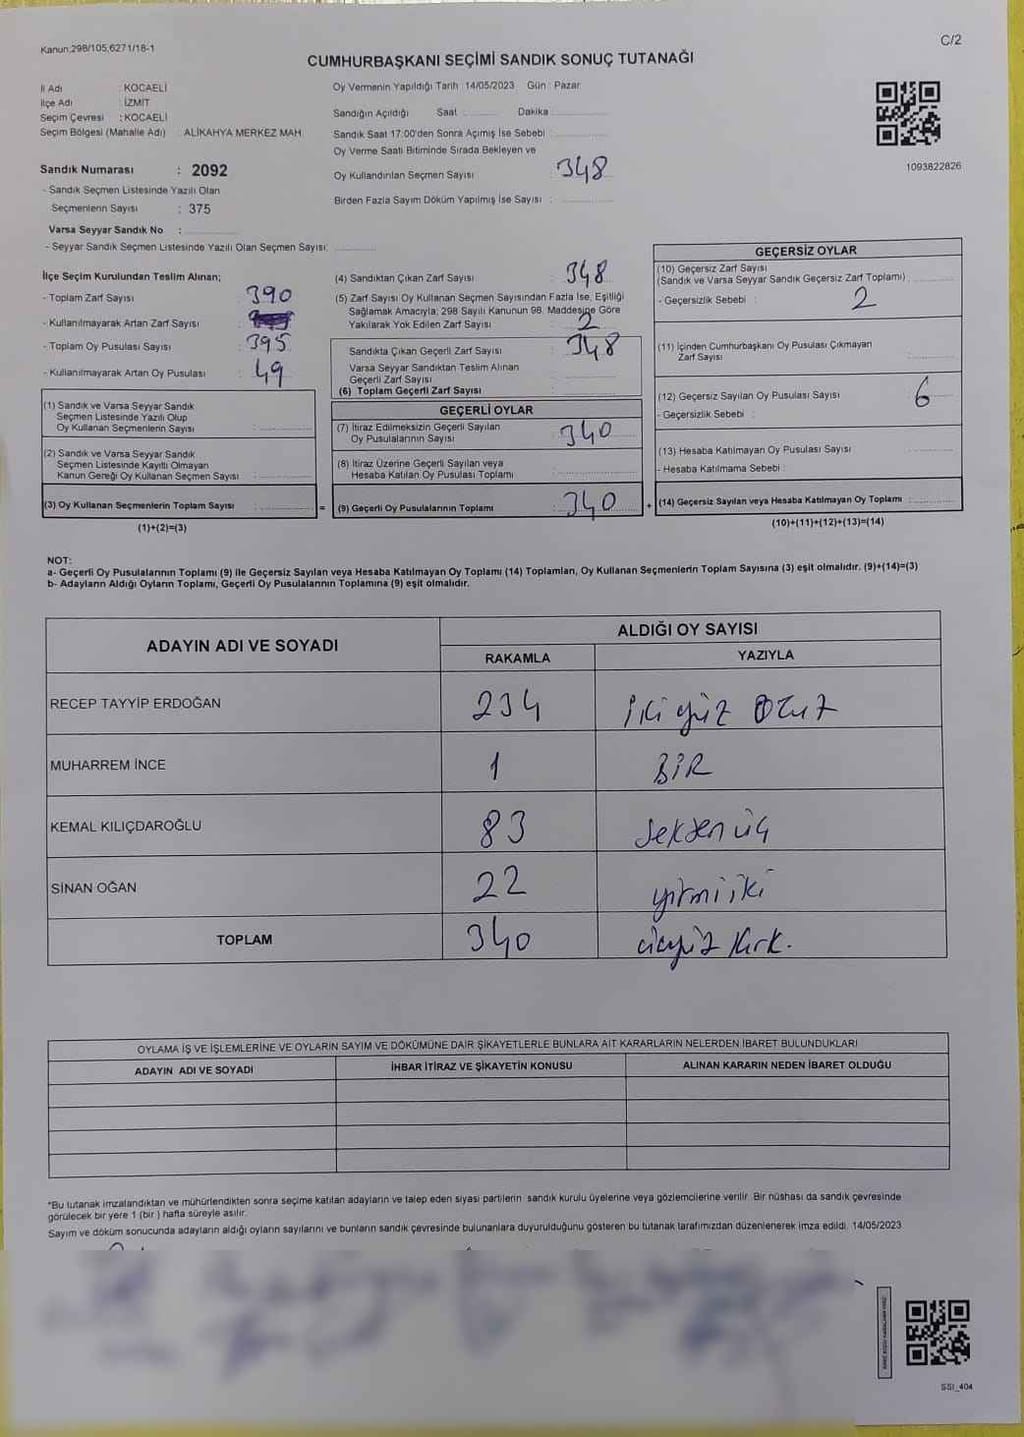 Kanun;298/105,6271/18-1
C/2
CUMHURBAŞKANI SEÇİMİ SANDIK SONUÇ TUTANAĞI
İl Adı : KOCAELİ
İlçe Adı : İZMİT
Seçim Çevresi : KOCAELİ
Seçim Bölgesi (Mahalle Adı) : ALİKAHYA MERKEZ MAH.
Oy Vermenin Yapıldığı Tarih : 14/05/2023 Gün : Pazar
Sandığın Açıldığı Saat Dakika
Sandık Saat 17:00'den Sonra Açımış İse Sebebi
Oy Verme Saati Bitiminde Sırada Bekleyen ve
Oy Kullandırılan Seçmen Sayısı : 348
Birden Fazla Sayım Döküm Yapılmış İse Sayısı :
1093822826
Sandık Numarası : 2092
- Sandık Seçmen Listesinde Yazılı Olan
Seçmenlerin Sayısı : 375
Varsa Seyyar Sandık No :
- Seyyar Sandık Seçmen Listesinde Yazılı Olan Seçmen Sayısı:
İlçe Seçim Kurulundan Teslim Alınan;
- Toplam Zarf Sayısı : 390
- Kullanılmayarak Artan Zarf Sayısı :
- Toplam Oy Pusulası Sayısı : 395
- Kullanılmayarak Artan Oy Pusulası : 49
(1) Sandık ve Varsa Seyyar Sandık
Seçmen Listesinde Yazılı Olup
Oy Kullanan Seçmenlerin Sayısı :
(2) Sandık ve Varsa Seyyar Sandık
Seçmen Listesinde Kayıtlı Olmayan
Kanun Gereği Oy Kullanan Seçmen Sayısı :
(3) Oy Kullanan Seçmenlerin Toplam Sayısı :
(1)+(2)=(3)
(4) Sandıktan Çıkan Zarf Sayısı : 348
(5) Zarf Sayısı Oy Kullanan Seçmen Sayısından Fazla İse, Eşitliği
Sağlamak Amacıyla, 298 Sayılı Kanunun 98. Maddesine Göre
Yakılarak Yok Edilen Zarf Sayısı : 2
Sandıkta Çıkan Geçerli Zarf Sayısı : 348
Varsa Seyyar Sandıktan Teslim Alınan
Geçerli Zarf Sayısı
(6) Toplam Geçerli Zarf Sayısı
GEÇERLİ OYLAR
(7) İtiraz Edilmeksizin Geçerli Sayılan
Oy Pusulalarının Sayısı : 340
(8) İtiraz Üzerine Geçerli Sayılan veya
Hesaba Katılan Oy Pusulası Toplamı
= (9) Geçerli Oy Pusulalarının Toplamı : 340 +
GEÇERSİZ OYLAR
(10) Geçersiz Zarf Sayısı
(Sandık ve Varsa Seyyar Sandık Geçersiz Zarf Toplamı)
- Geçersizlik Sebebi : 2
(11) İçinden Cumhurbaşkanı Oy Pusulası Çıkmayan
Zarf Sayısı
(12) Geçersiz Sayılan Oy Pusulası Sayısı : 6
- Geçersizlik Sebebi :
(13) Hesaba Katılmayan Oy Pusulası Sayısı
- Hesaba Katılmama Sebebi :
(14) Geçersiz Sayılan veya Hesaba Katılmayan Oy Toplamı :
(10)+(11)+(12)+(13)=(14)
NOT:
a- Geçerli Oy Pusulalarının Toplamı (9) ile Geçersiz Sayılan veya Hesaba Katılmayan Oy Toplamı (14) Toplamları, Oy Kullanan Seçmenlerin Toplam Sayısına (3) eşit olmalıdır. (9)+(14)=(3)
b- Adayların Aldığı Oyların Toplamı, Geçerli Oy Pusulalarının Toplamına (9) eşit olmalıdır.
ADAYIN ADI VE SOYADI
ALDIĞI OY SAYISI
RAKAMLA YAZIYLA
RECEP TAYYİP ERDOĞAN 234 iki yüz otuz
MUHARREM İNCE 1 BİR
KEMAL KILIÇDAROĞLU 83 seksen üç
SİNAN OĞAN 22 yirmi iki
TOPLAM 340 üçyüz kırk.
OYLAMA İŞ VE İŞLEMLERİNE VE OYLARIN SAYIM VE DÖKÜMÜNE DAİR ŞİKAYETLERLE BUNLARA AİT KARARLARIN NELERDEN İBARET BULUNDUKLARI
ADAYIN ADI VE SOYADI İHBAR İTİRAZ VE ŞİKAYETİN KONUSU ALINAN KARARIN NEDEN İBARET OLDUĞU
*Bu tutanak imzalandıktan ve mühürlendikten sonra seçime katılan adayların ve talep eden siyasi partilerin sandık kurulu üyelerine veya gözlemcilerine verilir. Bir nüshası da sandık çevresinde
görülecek bir yere 1 (bir ) hafta süreyle asılır.
Sayım ve döküm sonucunda adayların aldığı oyların sayılarını ve bunların sandık çevresinde bulunanlara duyurulduğunu gösteren bu tutanak tarafımızdan düzenlenerek imza edildi. 14/05/2023
SSI_404